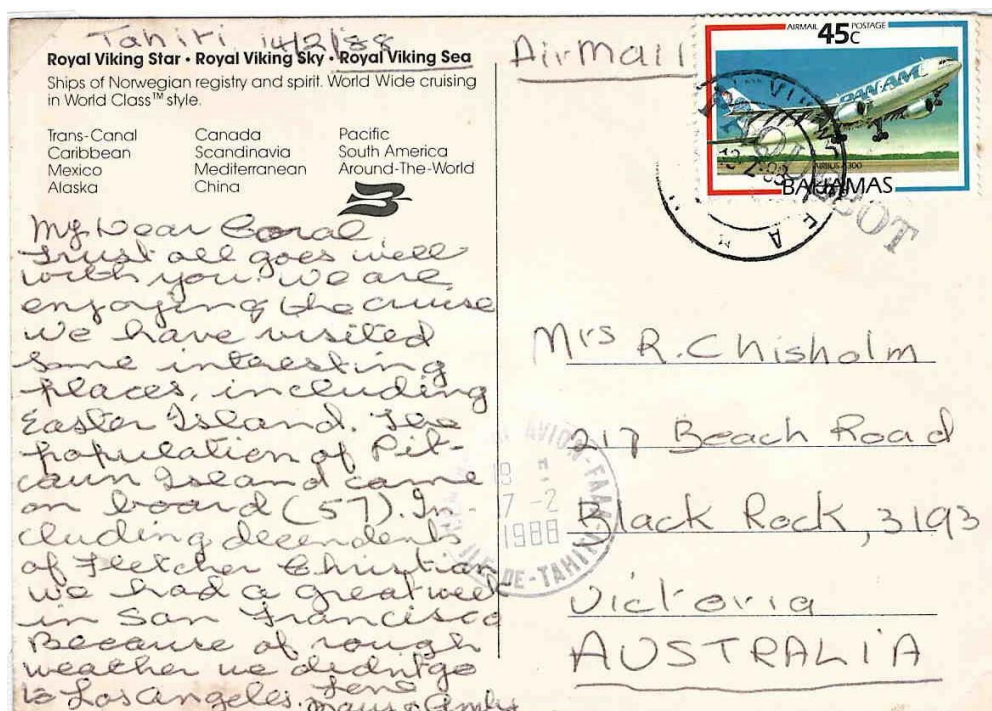 Tahiti 14/2/88
Royal Viking Star • Royal Viking Sky • Royal Viking Sea
Ships of Norwegian registry and spirit. World Wide cruising
in World Class™ style.
Trans-Canal
Caribbean
Mexico
Alaska
Canada
Scandinavia
Mediterranean
China
Pacific
South America
Around-The-World
My Dear Coral,
Trust all goes well
with you. We are
enjoying the cruise
we have visited
some interesting
places, including
Easter Island. The
population of Pit-
cairn Island came
on board (57). In-
cluding decendents
of Fletcher Christian
we had a great week
in San Francisco
Because of rough
weather we didn't go
to Los Angeles.
AirMail
AIRMAIL 45c POSTAGE
PAN AM
AIRBUS A300
BAHAMAS
PAQUEBOT
Mrs R. Chisholm
217 Beach Road
Black Rock, 3193
Victoria
AUSTRALIA
AVION-FAAA
18 H
17-2
1988
ILE DE-TAHITI